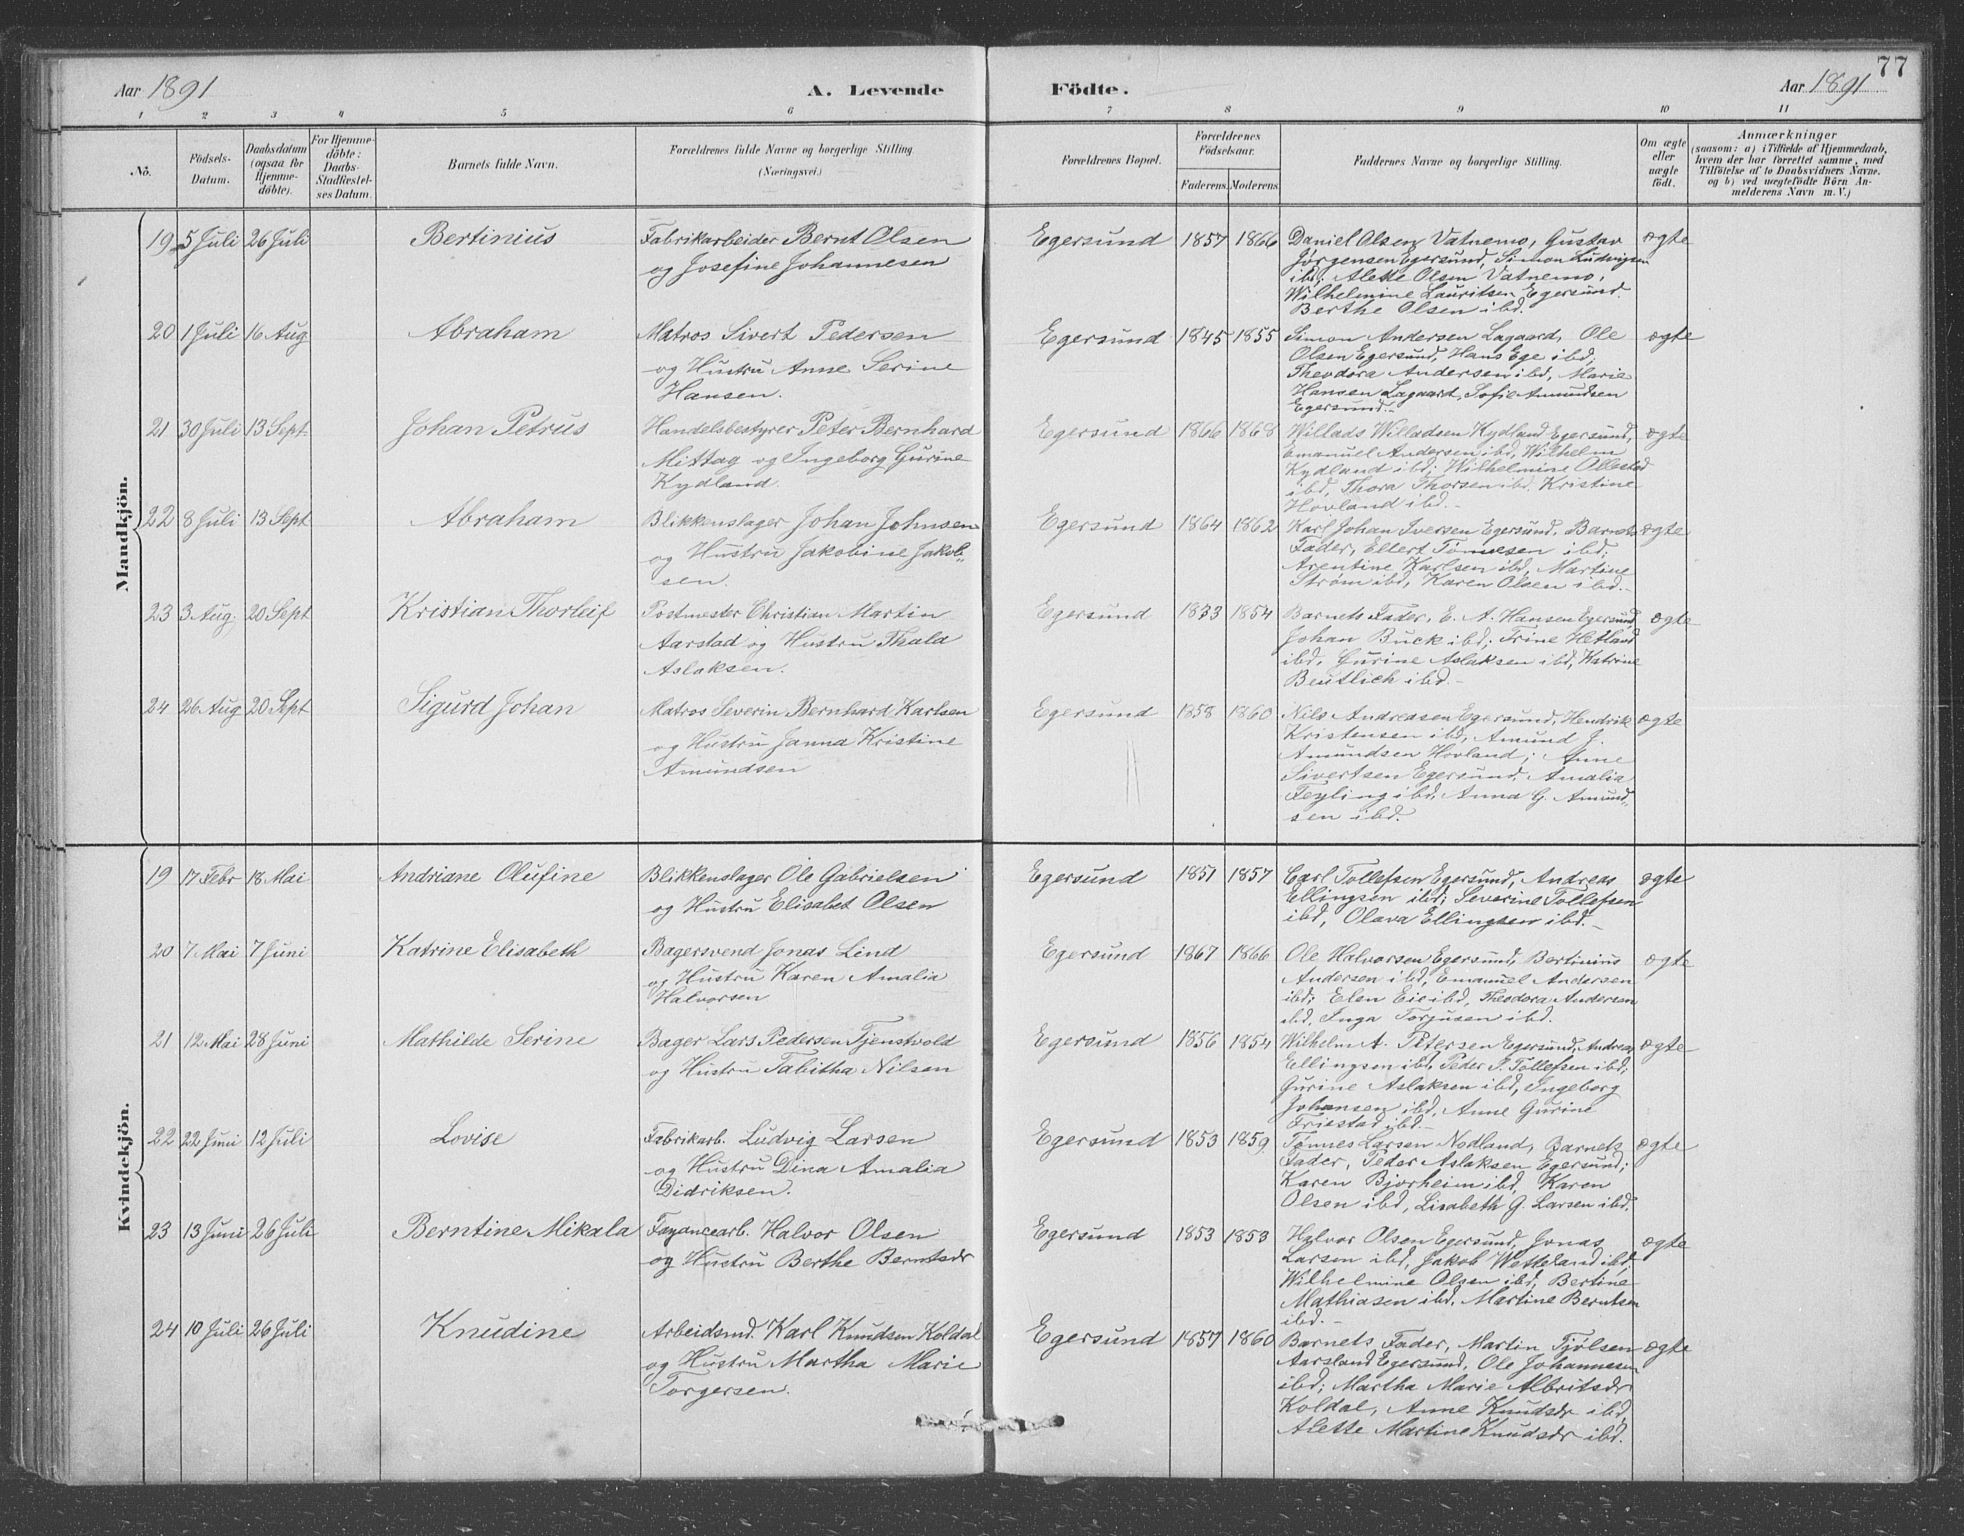 77
Aar 1891
A. Levende Födte.
Aar 1891
1 2 3 4 5 6 7 8 9 10 11
No.
Födsels-Datum.
Daabsdatum (ogsaa for Hjemme-döbte).
For Hjemme-döbte: Daabs-Stadfæstel-ses Datum.
Barnets fulde Navn.
Forældrenes fulde Navne og borgerlige Stilling (Næringsvei.)
Forældrenes Bopæl.
Forældrenes Födselsaar.
Faderens. Moderens.
Faddernes Navne og borgerlige Stilling.
Om ægte eller uægte födt.
Anmærkninger
(saasom: a) i Tilfælde af Hjemmedaab,
hvem der har forrettet samme, med
Tilföielse af to Daabsvidners Navne.
og b) ved uægtefödte Börn An-
melderens Navn m. V.)
Mandkjön.
19 5 Juli 26 Juli Bertinius
Fabrikarbeider Bernt Olsen
og Josefine Johannesen
Egersund 1857 1866
Daniel Olsen Vatnemo, Gustav
Jørgensen Egersund, Simon Ludvigsen
ibd; Alette Olsen Vatnemo,
Wilhelmine Lauritsen Egersund.
Berthe Olsen ibd.
ægte
20 1 Juli 16 Aug Abraham
Matros Sivert Pedersen
og Hustru Anne Serine
Hansen.
Egersund 1845 1855
Simon Andersen Lagaard, Ole
Olsen Egersund, Hans Ege ibd;
Theodora Andersen ibd, Marie
Hansen Lagaard, Sofie Amundsen
Egersund.-
ægte
21 30 Juli 13 Sept. Johan Petrus
Handelsbestyrer Peter Bernhard
Mittag og Ingeborg Gurine
Kydland.
Egersund 1866 1868
Willads Willadsen Kydland Egersund,
Emanuel Andersen ibd, Wilhelm
Kydland ibd; Wilhelmine Ollestad
ibd, Thora Thorsen ibd. Kristine
Hovland ibd.-
ægte
22 8 Juli 13 Sept Abraham
Blikkenslager Johan Johnsen
og Hustru Jakobine Jakob-
sen.
Egersund 1864 1862
Karl Johan Iversen Egersund, Barnets
Fader, Ellert Tønnesen ibd;
Arentine Karlsen ibd, Martine
Strøm ibd, Karen Olsen ibd.-
ægte
23 3 Aug. 20 Sept Kristian Thorleif
Postmester Christian Martin
Aarstad og Hustru Thala
Aslaksen.
Egersund 1833 1854
Barnets Fader, E. A. Hansen Egersund,
Johan Buck ibd; Trine Hetland
ibd, Gurine Aslaksen ibd, Katrine
Beutlich ibd.-
ægte
24 26 Aug 20 Sept Sigurd Johan
Matros Severin Bernhard Karlsen
og Hustru Janna Kristine
Amundsen
Egersund 1858 1860
Nils Andreasen Egersund, Hendrik
Kristensen ibd, Amund J.
Amundsen Hovland; Anne
Sivertsen Egersund, Amalia
Feyling ibd, Anna G. Amund-
sen ibd.
ægte
Kvindekjön.
19 17 Febr 18 Mai Andriane Olufine
Blikkenslager Ole Gabrielsen
og Hustru Elisabet Olsen
Egersund 1851 1857
Carl Tollefsen Egersund, Andreas
Ellingsen ibd; Severine Tollefsen
ibd, Olava Ellingsen ibd.-
ægte
20 7 Mai 7 Juni Katrine Elisabeth
Bagersvend Jonas Lind
og Hustru Karen Amalia
Halvorsen
Egersund 1867 1866
Ole Halvorsen Egersund, Bertinius
Andersen ibd, Emanuel Andersen
ibd; Elen Eie ibd, Theodora Andersen
ibd, Inga Torjusen ibd.
ægte
21 12 Mai 28 Juni Mathilde Serine
Bager Lars Pedersen Tjenstvold
og Hustru Tabitha Nilsen
Egersund 1856 1854
Wilhelm A. Petersen Egersund, Andreas
Ellingsen ibd, Peder P. Tollefsen ibd;
Gurine Aslaksen ibd, Ingeborg
Johansen ibd, Anne Gurine
Friestad ibd.-
ægte
22 22 Juni 12 Juli Lovise
Fabrikarb. Ludvig Larsen
og Hustru Dina Amalia
Didriksen.
Egersund 1853 1859
Tønnes Larsen Nodland, Barnets
Fader, Peder Aslaksen Egersund;
Karen Bjorheim ibd, Karen
Olsen ibd, Lisabeth G. Larsen ibd.
ægte
23 13 Juni 26 Juli Berntine Mikala
Fayancearb. Halvor Olsen
og Hustru Berthe Berntsdr
Egersund 1853 1853
Halvor Olsen Egersund, Jonas
Larsen ibd, Jakob Wetteland ibd;
Wilhelmine Olsen ibd, Bertine
Mathiasen ibd, Martine Berntsen
ibd.-
ægte
24 10 Juli 26 Juli Knudine
Arbeidsmd. Karl Knudsen Koldal
og Hustru Martha Marie
Torgersen.
Egersund 1857 1860
Barnets Fader, Martin Tjølsen
Aarsland Egersund, Ole Johannesen
ibd; Martha Marie Albritsdr
Koldal, Anne Knudsdr ibd,
Alette Martine Knudsdr ibd.
ægte